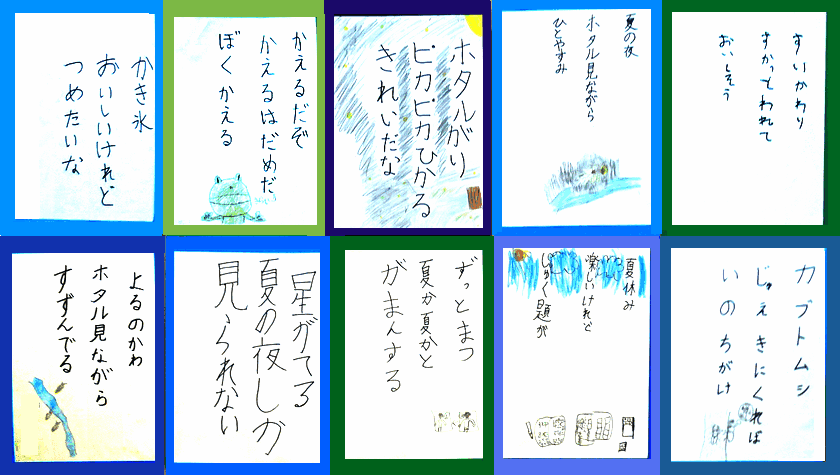 かき氷
おいしいけれど
つめたいな
かえるだぞ
かえるはだめだ
ぼくかえる
ホタルがり
ピカピカひかる
きれいだな
夏の夜
ホタル見ながら
ひとやすみ
すいかわり
すかっとわれて
おいしそう
よるのかわ
ホタル見ながら
すずんでる
星がでてる
夏の夜しか
見られない
ずっとまつ
夏か夏かと
がまんする
夏休み
楽しいけれど
しゅく題が
カブトムシ
じゅえきにくれば
いのちがけ